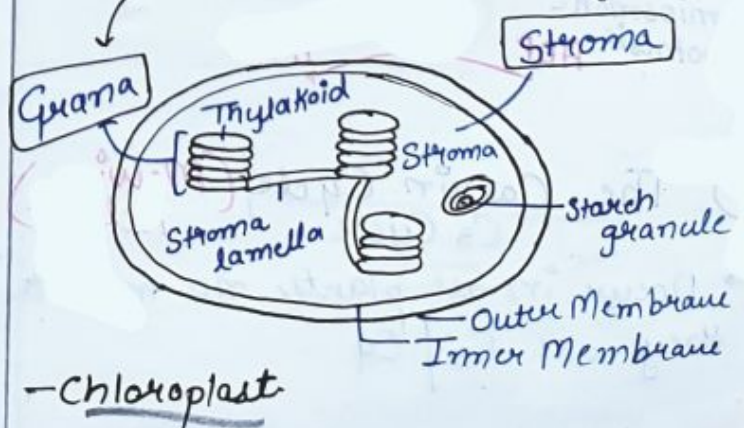 Stroma
Grana
Thylakoid
Stroma
Stroma
lamella
Starch
granule
Outer Membrane
Inner Membrane
- Chloroplast